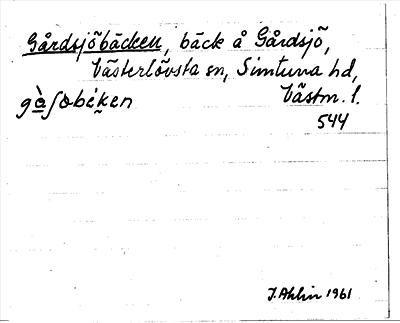 Gårdsjöbäcken, bäck å Gårdsjö,
Västerlövsta sn, Simtuna hd,
Västm. l.
gà̱ʃɷbɛ́ḵen
544
J. Ahlin 1961